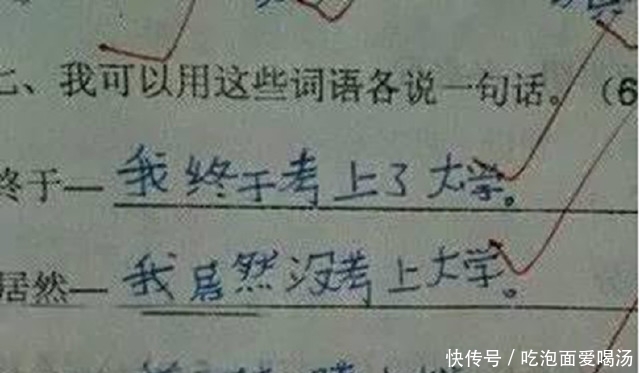 七、我可以用这些词语各说一句话。(6
终于—我终于考上了大学。
居然—我居然没考上大学。
快传号/吃泡面爱喝汤